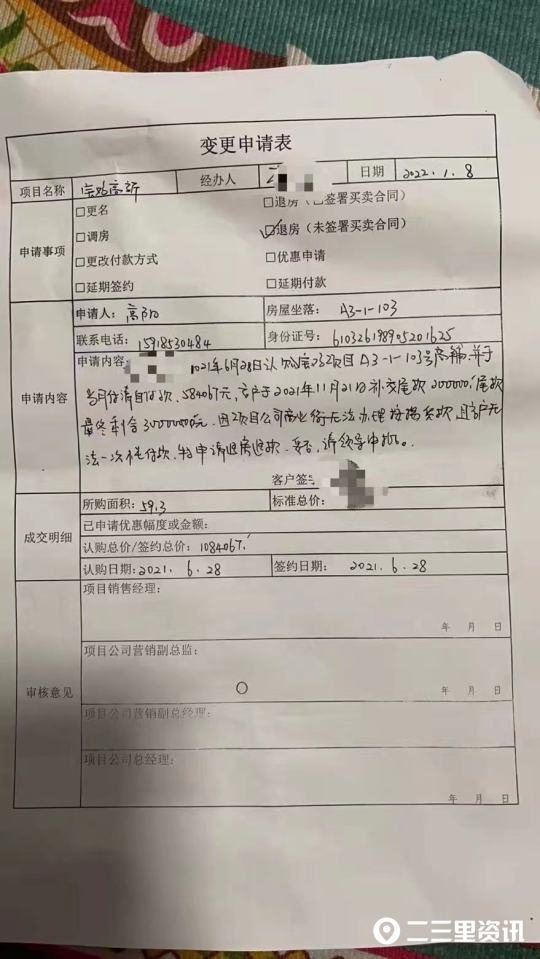 变更申请表
项目名称 宝鸡高新 经办人 日期 2022.1.8
申请事项
□更名 □退房（已签署买卖合同）
□调房 ☑退房（未签署买卖合同）
□更改付款方式 □优惠申请
□延期签约 □延期付款
申请内容
申请人：高阳 房屋坐落：A3-1-103
联系电话：15918530484 身份证号：610326198905201625
申请内容： 2021年6月28日认购 项目A3-1-103号商铺，并于
当月付清首付款，584067元，客户于2021年11月21日补交尾款200000，尾款
最终剩余300000元。因 项目公司商业街无法办理按揭贷款，且客户无
法一次性付款，特申请退房退款，妥否，请领导审批。
客户签
成交明细
所购面积：59.3 标准总价：
已申请优惠幅度或金额：
认购总价/签约总价：1084067
认购日期：2021.6.28 签约日期：2021.6.28
审核意见
项目销售经理：
年 月 日
项目公司营销副总监：
项目公司营销副总经理：
项目公司总经理：
年 月 日
二三里资讯